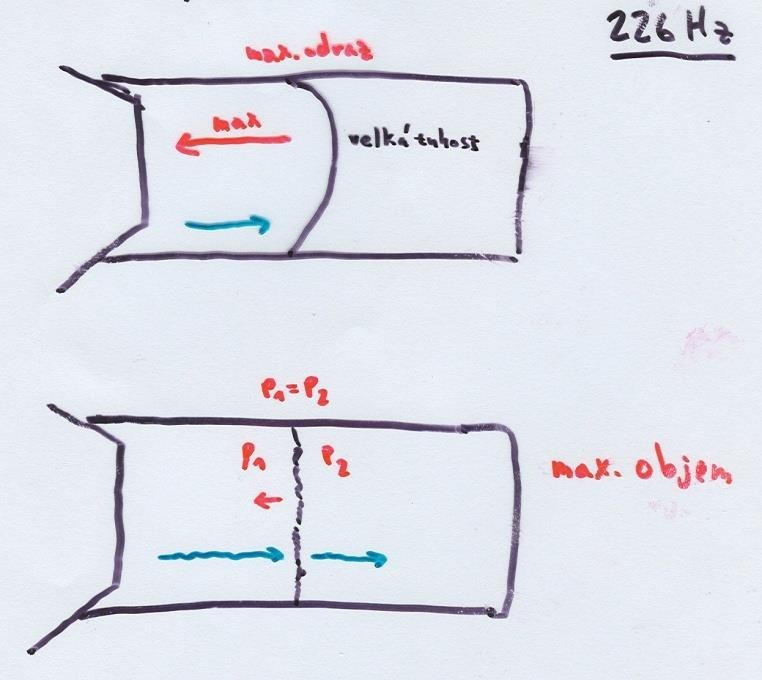 226 Hz
max. odraz
max
velká tuhost
P1=P2
P1 P2
max. objem